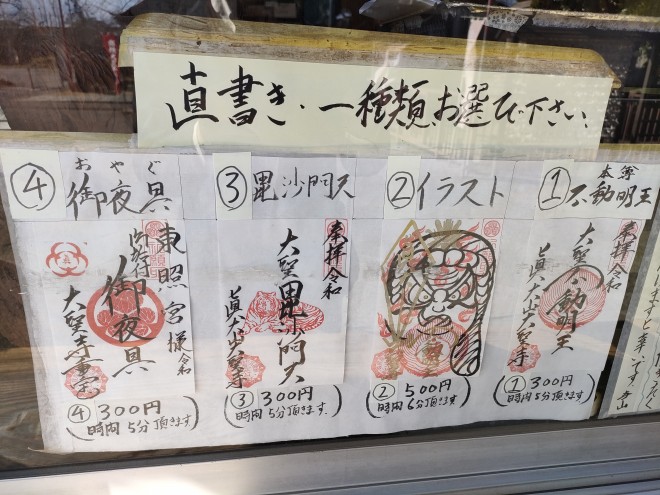 直書き、一種類、お選び下さい
① 本尊 不動明王
② イラスト
③ 毘沙門天
④ おやぐ 御夜具
奉拝 令和
大聖不動明王
① 300円
(時間5分頂きます)
② 500円
(時間6分頂きます)
奉拝 令和
大聖毘沙門天
③ 300円
(時間5分頂きます)
東照宮様
御夜具
令和
大聖寺
④ 300円
(時間5分頂きます)